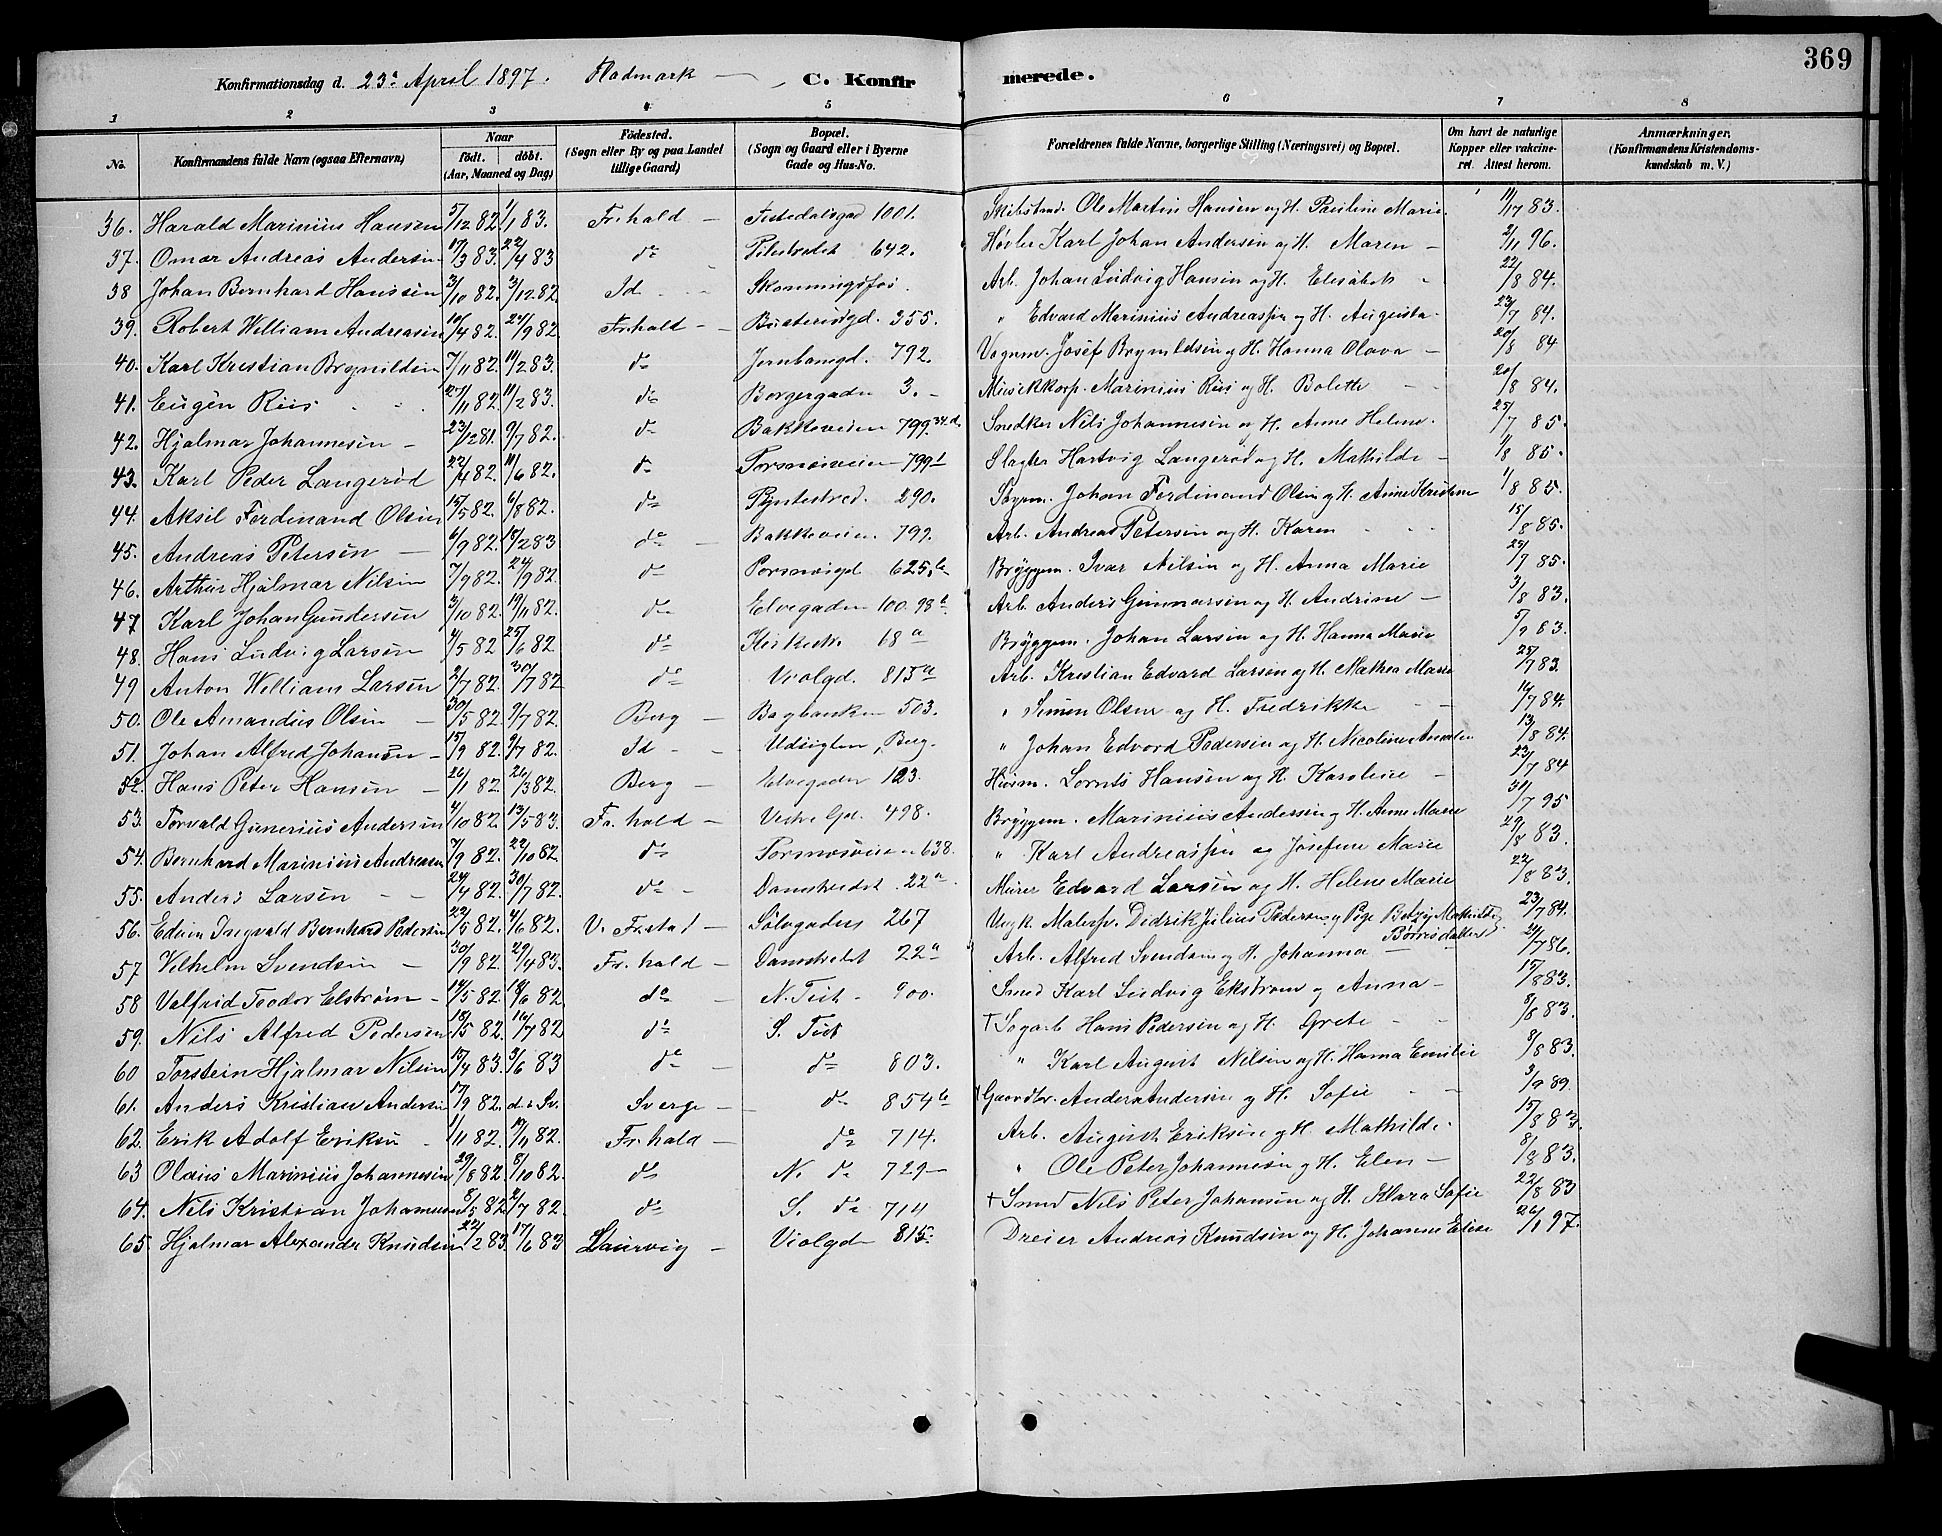 369
Konfirmationsdag d. 23de April 1897. Hadmark — C. Konfirmerede.
1 2 3 4 5 6 7 8
No. Konfirmandens fulde Navn (ogsaa Efternavn) Naar födt. döbt. (Aar, Maaned og Dag) Födested. (Sogn eller By og paa Landet tillige Gaard) Bopæl. (Sogn og Gaard eller i Byerne Gade og Hus-No. Forældrenes fulde Navne, borgerlige Stilling (Næringsvei) og Bopæl. Om havt de naturlige Kopper eller vakcineret. Attest herom. Anmærkninger. (Konfirmandens Kristendomskundskab m. V.)
36. Harald Marinius Hansen 5/12 82. 1/1 83. Fr.hald — Festedalsgad 1001. Skibstmd. Ole Martin Hansen og H. Pauline Marie. 11/17 83.
37. Omar Andreas Andersen 17/3 83. 22/4 83 do Pilestrædet 642. Høvler Karl Johan Andersen og H. Maren — 2/11 96.
38 Johan Bernhard Hanssen 3/10 82. 3/12 82 Id Skonningsfos. Arb. Johan Ludvig Hansen og H. Elisabet 22/8 84.
39. Robert William Andreasen 10/4 82. 24/9 82 Fr.hald — Busterudgd. 355. " Edvard Marinius Andreassen og H. Augusta. 23/7 84.
40. Karl Kristian Brynildsen 7/11 82. 11/2 83. do Jernbanegd. 792. Vognm. Josef Brynildsen og H. Hanna Olava — 20/8 84
41. Eugén Riis 27/11 82. 11/2 83. do Borgergaden 3. — Musikkorp. Marinius Riis og H. Bolette 20/8 84.
42. Hjalmar Johannesen — 23/12 81. 9/7 82. do Bakkeveien 799.34.d. Snedker Nils Johannesen og H. Anne Helene. 25/7 85.
43. Karl Peder Langerød 22/4 82. 11/6 82. do Torsnøsveien 799 Slagter Hartvig Langerød og H. Mathilde — 4/8 85.
44. Aksel Ferdinand Olsen 15/5 82. 6/8 82. do Pyntestred. 290. Søgm. Johan Ferdinand Olsen og H. Anne Kristine 1/8 85.
45. Andreas Petersen — 6/9 82. 15/2 83 do Bakkeveien 792. Arb. Andreas Petersen og H. Karen 15/8 85.
46. Arthur Hjalmar Nilsen 7/9 82. 24/9 82. do Porsnøsgd 625.b Bryggem. Ivar Nilsen og H. Anna Marie 25/7 85.
47 Karl Johan Gundersen 3/10 82. 19/11 82. do Elvegaden 100. 98b Arb. Anders Gunnarsen og H. Andrine — 3/8 83.
48. Hans Ludvig Larsen 4/5 82 25/6 82. do Kirkestr. 68a Bryggem. Johan Larsen og H. Hanna Marie 5/9 83.
49 Anton William Larsen 2/7 82. 30/7 82 do Violgd. 815a Arb. Kristian Edvard Larsen og H. Mathea Marie 25/7 83.
50. Ole Amandus Olsen — 30/5 82 9/7 82. Berg — Bagbanken 503. " Simen Olsen og H. Fredrikke 16/7 84.
51. Johan Alfred Johansen — 15/9 82. 9/7 82. Id — Udsigten, Berg. " Johan Edvard Pedersen og H. Nicoline Amalie 13/8 84.
52. Hans Peter Hansen — 26/1 82. 26/3 82. Berg — Elvegaden 123. Husm. Lornts Hansen og H. Karoline — 23/7 84
53. Torvald Gunerius Andersen 4/10 82. 13/5 83. Fr.hald — Vestre Gd. 498. Bryggem. Marinius Andersen og H. Anne Marie 31/7 95
54. Bernhard Marinius Andreasen 7/9 82. 22/10 82. do Torsnøsveien 638. " Karl Andreassen og Josefine Marie 29/8 83.
55. Anders Larsen — 24/4 82. 30/7 82. do — Damstredet 22a. Murer Edvard Larsen og H. Helene Marie 22/8 83.
56. Edvin Ingvald Bernhard Pedersen 22/5 82. 4/6 82. V. Fr.stad — Sølvgaden 267 Ungk. Malersv. Didrik Julius Pedersen og Pige Betzy Mathilde Børresdatter 23/7 84.
57 Vilhelm Svendsen — 30/9 82. 29/4 83. Fr.hald — Damstredet 22a Arb. Alfred Svendsen og H. Johanna — 21/7 86.
58 Valfrid Teodor Elstrøm — 14/5 82. 18/6 82 do — N. Tist 900. Smed Karl Ludvig Ekstrøm og Anna — 15/8 83.
59. Nils Alfred Pedersen 18/5 82. 16/7 82 do S. Tist † Sogarb Hans Pedersen og H. Grete — 5/8 83.
60 Torstein Hjalmar Nilsen 15/4 83. 3/6 83 do — do 803. " Karl August Nilsen og H. Hanna Emilie 8/8 83.
61. Anders Kristian Andersen 17/9 82. do i Sv. Sverge — do 854b † Gaardbr. Anders Andersen og H. Sofie 3/9 89.
62. Erik Adolf Eriksen 1/11 82. 19/11 82. Fr.hald — do 714. Arb. August Eriksen og H. Mathilde. 15/8 83.
63 Olaus Marinius Johannesen 29/8 82. 8/10 82. do N. do 729 — " Ole Peter Johannesen og H. Elen — 8/8 83.
64. Nils Kristian Johannesen 8/5 82. 2/7 82. do S. do 714 † Smed Nils Peter Johansen og H. Klara Sofie 22/8 83
65. Hjalmar Alexander Knudsen 22/12 83. 17/6 83 Laurvig — Violgd 815. Dreier Andreas Knudsen og H. Johanne Elise 26/1 97.